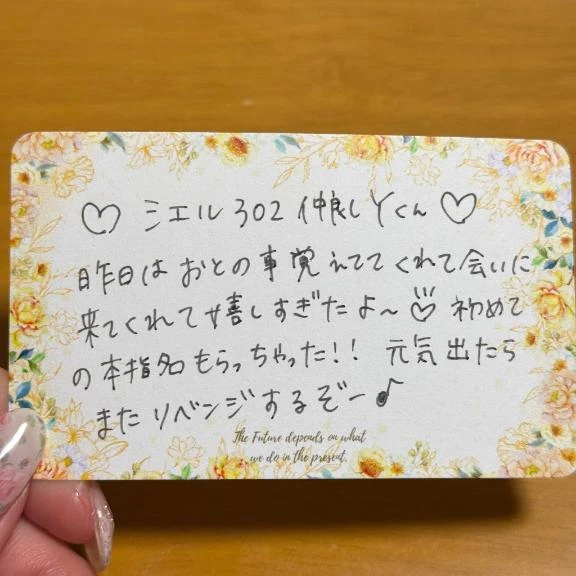 ♡ シエル302 仲良しYくん ♡
昨日はおとの事覚えててくれて会いに
来てくれて嬉しすぎたよ〜♡ 初めて
の本指名もらっちゃった!! 元気出たら
またリベンジするぞー♪
The Future depends on what
we do in the present.